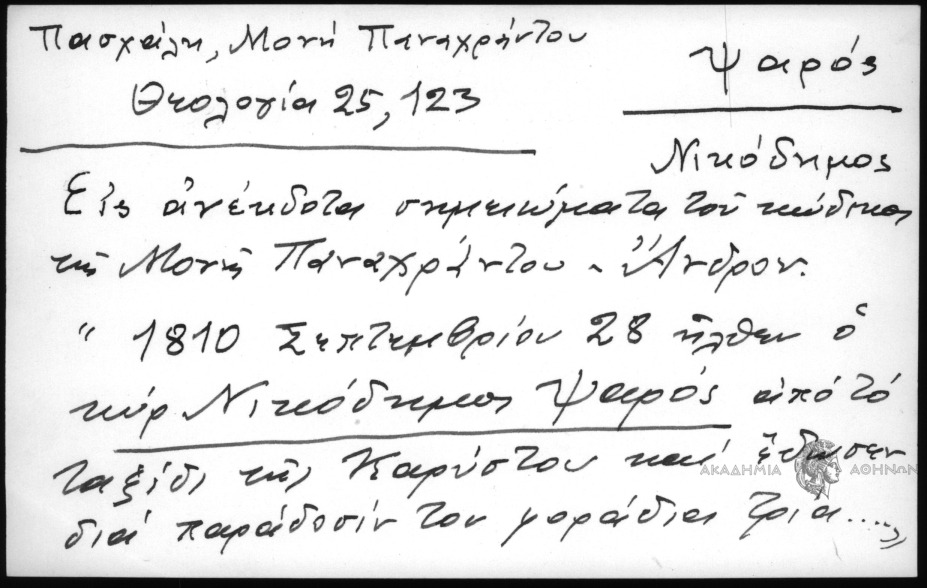 Πασχάλη, Μονή Παναχράντου
Θεολογία 25, 123
Ψαρός
Νικόδημος
Εἰς ἀνέκδοτα σημειώματα τοῦ κώδικος
τῆς Μονῆς Παναχράντου - Ἄνδρον.
" 1810 Σεπτεμβρίου 28 ἦλθεν ὁ
κύρ Νικόδημος Ψαρός ἀπό τό
ταξίδι τῆς Καρύστου καί ἔδωσεν
διά παράδοσίν του γοράδια τρία....."
ΑΚΑΔΗΜΙΑ ΑΘΗΝΩΝ